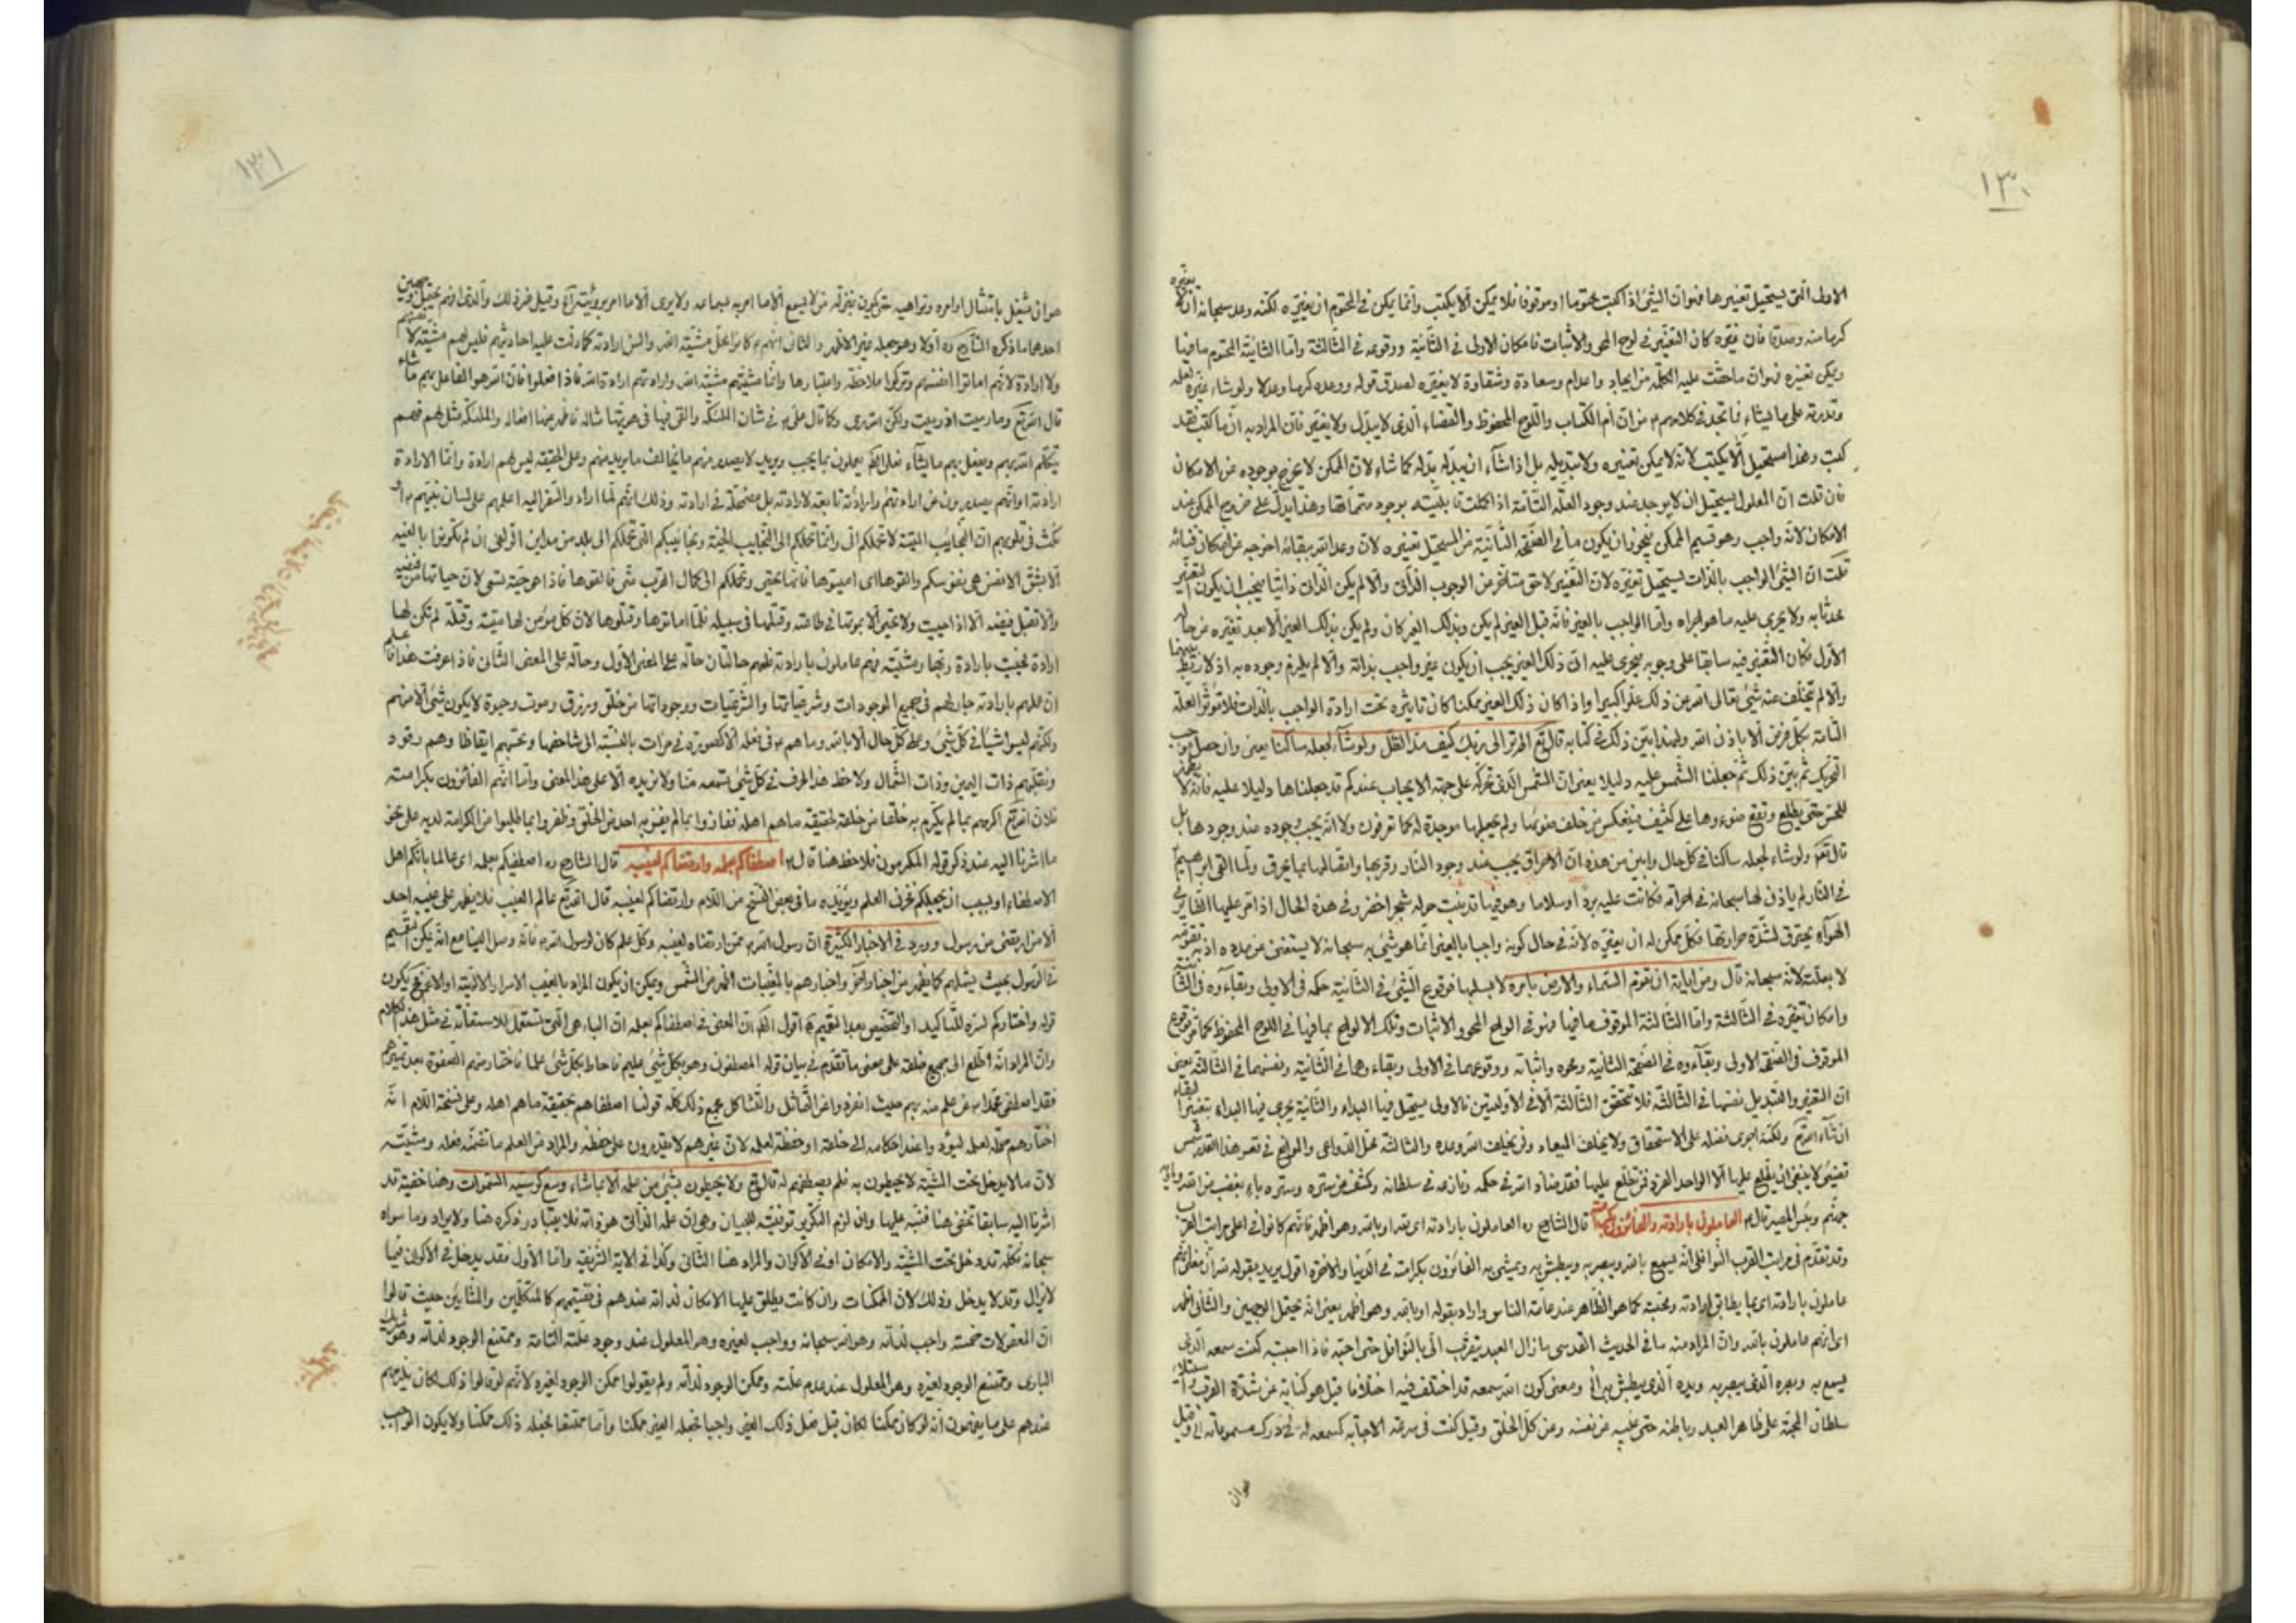 ١٣٠
الاولى الّتى يستحيل تغييرها فهو انّ الشئ اذا كتب محتوما او موقوفا فلا يمكن الّا يكتب وانّما يمكن فى المحتوم ان يغيّره لكنّه وعد سبحانه انّه لا يغيّره
كرما منه وصدقا فان غيّره كان التغيّر فى لوح المحو والاثبات فامكان الاولى فى الثّانية ووقوعه فى الثّالثة وامّا الثّانية المحتوم ما فيها
ويمكن تغيّره فهو انّ ما حقّت عليه الكلمة من ايجاد واعدام وسعادة وشقاوة لا يغيّره لصدق قوله ووعده كرما وعدلا ولو شاء غيّره لعلمه
وقدرته على ما يشاء فما تجد فى كلامهم م من انّ امّ الكتاب واللوح المحفوظ والقضاء الّذى لا يبدّل ولا يغيّر فانّ المراد به انّ ما كتب فقد
كتب وهذا مستحيل الّا يكتب لانّه لا يمكن تغييره ولا تبديله بل اذا شآء ان يبدّله بدّله كما شاء لانّ الممكن لا يخرج بوجوده عن الامكان
فان قلت انّ المعلول يستحيل ان لا يوجد عند وجود العلّة التّامّة اذا اكملت قابليّته بوجود متمّماتها وهذا يدلّ على خروج الممكن عند
الامكان لانّه واجب وهو قسيم الممكن فيجوز ان يكون ما فى الصّفحة الثّانية من المستحيل تغييره لانّ وعد الله ببقائه اخرجه عن امكان فنائه
قلت انّ الشئ الواجب بالذّات يستحيل تغيّره لانّ التّغيير لاحق متأخّر من الوجوب الذّاتى والّا لم يكن الذّات ذاتيّا فيجب ان يكون التغيّر
محدثا به ولا يجرى عليه ما هو اجراه وامّا الواجب بالغير فانّه قبل الغير لم يكن وبذلك الغير كان ولم يكن بذلك الغير الّا بعد تغيّره عن حاله
الاوّل فكان التّغيّر فيه سابقا على وجوبه فيجرى عليه انّ ذلك الغير يجب ان يكون غير واجب بذاته والّا لم يلزم وجوده به اذ لا ربط بينهما
والّا لم يتخلّف عنه شئ تعالى الله عن ذلك علوّا كبيرا واذا كان ذلك الغير ممكنا كان تاثيره تحت ارادة الواجب بالذّات فلا تؤثّر العلّة
التّامّة بكلّ فرض الّا باذن الله ولهذا بيّن ذلك فى كتابه قال تع الم تر الى ربّك كيف مدّ الظّل ولو شآء لجعله ساكنا يعنى وان حصل موجب
التّحريك ثم بيّن ذلك ثمّ جعلنا الشّمس عليه دليلا يعنى انّ الشّمس الّتى تحرّكه على جهة الايجاب عندكم قد جعلناها دليلا عليه فانّه لا يظهر
للحسّ حتّى يطلع ويقع ضوءها على كثيف فينعكس من خلف ضوئها ولم نجعلها موجدة له كما تعرفون ولا انّه يجب وجوده عند وجودها بل
قال تعم ولو شاء لجعله ساكنا فى كلّ حال وابين من هذه انّ الاحراق يجب عند وجود النّار وقربها واتّصالها بما يحرق ولمّا القى ابرهيم
فى النّار لم ياذن لها سبحانه فى احراقه فكانت عليه بردا وسلاما وهو فيها قد نبت حوله شجر اخضر وفى هذه الحال اذا مرّ عليها الطّاير فى
الهوآء يحترق لشدّة حرارتها فكلّ ممكن له ان يغيّره لانّه فى حال كونه واجبا بالغير انّما هو شئ به سبحانه لا يستغنى عن مدده اذ به تقوّمه
لا بعلّته لانّه سبحانه قال ومن اياته ان تقوم السّماء والارض بامره لا بسبلها فوقوع الشّئ فى الثّانية حكمه فى الاولى وبقآءه فى الثّانية
وامكان تغيّره فى الثّالثة وامّا الثّالثة الموقوف ما فيها فهو فى الواح المحو والاثبات وتلك الالواح بما فيها فى اللوح المحفوظ كما مرّ فوقوع
الموقوف فى الصّفحة الاولى وبقآءه فى الصّفحة الثانية ومحوه واثباته ووقوعهما فى الاولى وبقاء وهما فى الثّانية ونفسهما فى الثّالثة يعنى
انّ التغيّر والتّبديل نفسها فى الثّالثة فلا تتحقق الثّالثة الّا فى الاوليتين فالاولى يستحيل فيها البداء والثّانية يجرى فيها البداء بتغيير البقاء
ان شآء الله تع ولكنّه اجرى فضله على الاستحقاق ولا يخلف الميعاد ولن يخلف الله وعده والثالثة محلّ الدّواعى والموانع فى تغيير هذا القدر شمس
تضئ لا ينبغى ان يطّلع عليها الّا الواحد الفرد فمن تطلّع عليها فقد ضادّ الله فى حكمه ونازعه فى سلطانه وكشف عن ستره وسرّه وباء بغضب من الله وماويه
جهنّم وبئس المصير قال م العاملون بارادته والفائزون بكرامته قال الشّارح ره العاملون بارادته اى بقدر او بالله وهو اظهر فانّهم كانوا فى اعلى مراتب القرب
وقد تقدّم فى مراتب القرب النّوافل انّه يسمع بالله ويبصر به ويبطش به ويمشى به الفائزون بكرامته فى الدّنيا والاخرة اقول يريد بقوله
عاملون بارادته اى بما يطابق ارادته ومحبّته كما هو الظّاهر عند عامّة النّاس واراد بقوله او بالله وهو اظهر يعنى انّه يحتمل الوجهين والثّانى اظهر
اى انّهم عاملون بالله وانّ المراد منه ما فى الحديث القدسى ما زال العبد يتقرّب الىّ بالنّوافل حتى احبّه فاذا احببته كنت سمعه الّذى
يسمع به وبصره الّذى يبصر به ويده الّذى يبطش بها الخ ومعنى كون الله سمعه قد اختلف فيه اختلافا قيل هو كناية عن شدّة القرب واستيلاء
سلطان المحبّة على ظاهر العبد وباطنه حتى غيّبه عن نفسه وعن كلّ الخلق وقيل كنت فى سرعة الاجابة كسمعه له فى درك مسموعاته الخ وقيل
هو ان
١٣١
هو ان يشغل بامتثال اوامره ونواهيه حتى يكون بمنزلة من لا يسمع الّا ما امر به بسماعه ولا يرى الّا ما امر برؤيته وقيل غير ذلك والّذى افهم يحتمل وجهين
احدهما ما ذكره الشّارح ره اوّلا وهو جعله غير الاظهر والثانى انّهم م كانوا محلّ مشيّة الله والسن ارادته كما دلّت عليه احاديثهم فليس لهم مشيّة لانفسهم
ولا ارادة لانّهم اماتوا انفسهم وتركوا ملاحظة واعتبارها وانّما مشيّتهم مشيّة الله وارادتهم ارادة الله فاذا فعلوا فانّ الله هو الفاعل بهم ما شاء
قال الله تع وما رميت اذ رميت ولكنّ الله رمى وكما قال علىّ م فى شان الملئكة والقى فى هويّتها مثاله فاظهر عنها افعاله والملئكة مثل لهم فهم
يتكلّم الله بهم ويفعل بهم ما يشآء فعلى الحكم يعملون بما يحب ويريد لا يصدر منهم ما يخالف ما يريد منهم وعلى الحقيقة ليس لهم ارادة وانّما الارادة
ارادته او انّهم يصدرون عن ارادتهم وارادتهم تابعة لارادته بل مضمحلّة فى ارادته وذلك انّهم لمّا اراد والسّفر اليه اعلمهم على لسان نبيّهم م او
نكث فى قلوبهم انّ النّجائب الميّتة لا تحملكم الىّ وانّما تحملكم الى النّجايب الحيّة ونجائبكم الّتى تحملكم الى بلد من مداين القربى ان لم تكونوا بالغيه
الّا بشقّ الانفس هى نفوسكم والقوها اى اميتوها فانّها تحيى وتحملكم الى كمال القرب منّى فالقوها فاذا هى حيّة تسعى لانّ حياتها من فيضه
والّا تقبل فيضه الّا اذا اميت ولا تحيى الّا بموتها فى طاعته وقتلها فى سبيله فلمّا اماتوها وقتلوها لانّ كلّ مؤمن لها ميتة وقتلة لم تكن لها
ارادة فحييت بارادة ربّها ومشيّته فهم عاملون بارادته فلهم حالتان حالة على المعنى الاوّل وحالة على المعنى الثّانى فاذا عرفت هذا فاعلم
انّ عملهم بارادته جار لهم فى جميع الموجودات وشرعيّاتها والشّرعيّات ووجوداتها من خلق ورزق وموت وحيوة لا يكون شئ الّا منهم
ولكنّهم ليسوا شيأ فى كلّ شئ وعلى كلّ حال الّا بالله وما هم م فى فعله الّا كصورة فى مرات بالنّسبة الى شاخصها وتحسبهم ايقاظا وهم رقود
ونقلّبهم ذات اليمين وذات الشّمال ولاحظ هذا الحرف فى كلّ شئ تسمعه منّا ولا نريده الّا على هذا المعنى وامّا انّهم الفائزون بكرامته
فلانّ الله تع اكرمهم بما لم يكرم به خلقا من خلقه لحقيقة ما هم اهله ففازوا بما لم يفز به احد من الخلق وظفروا بما طلبوا من الكرامة لديه على نحو
ما اشرنا اليه عند ذكر قوله المكرمون فلاحظ هنا قال م اصطفاكم بعلمه وارتضاكم لغيبه قال الشّارح ره اصطفيكم بعلمه اى عالما بانّكم اهل
الاصطفاء او بسبب ان يجعلكم مخزن العلم ويؤيّده ما فى بعض النّسخ من اللّام وارتضاكم لغيبه قال الله تع عالم الغيب فلا يظهر على غيبه احد
الّا من ارتضى من رسول وورد فى الاخبار الكثيرة انّ رسول الله م ممّن ارتضاه لغيبه وكلّ علم كان لرسول الله م فانّه وصل الينا مع انّه يمكن التّعميم
فى الرّسول بحيث يشملهم كما يظهر من اخبار اخر واخبارهم بالمغيبات اظهر من الشّمس ويمكن ان يكون المراد بالغيب الاسرار الالهيّة او الاعمّ فيكون
قوله واختاركم لسرّه للتّاكيد او التّخصيص بعد التّعميم اقول الظاهر انّ المعنى فى اصطفاكم بعلمه انّ الباء هى الّتى تستعمل للاستعانة فى مثل هذا الكلام
وانّ المراد انّه اطّلع الى جميع خلقه على معنى ما تقدّم فى بيان قوله المصطفون وهو بكلّ شئ عليم فاحاط بكلّ شئ علما فاختار منهم الصّفوة بعد تمييزهم
فقد اصطفى محمّدا م عن علم منه بهم حيث انفرد واعن التّماثل والتّشاكل مجمع ذلك كلّه قولنا اصطفاهم بحقيقة ما هم اهله وعلى نسخة اللّام انّه
اختارهم محلّة لعلمه ليؤدّوا عنه احكامه الى خلقه او حفظة لعلمه لانّ غيرهم لا يقدرون على حفظه والمراد من العلم ما تضمّنه فعله ومشيّته
لانّ ما لا يدخل تحت المشيّة لا يحيطون به فلم يصطفهم له قال تع ولا يحيطون بشئ من علمه الّا بما شاء وسع كرسيّه السّموات وهنا خفيّة قد
اشرنا اليه سابقا تخفى هنا فنبّه عليها وان لزم التّكرير توفية للبيان وهى انّ علمه الذّاتى هو ذاته فلا يتبادر ذكره هنا ولا يراد وما سواه
سبحانه فكلّه قد دخل تحت المشيّة والامكان او فى الاكوان والمراد هنا الثّانى وكذا فى الاية الشّريفة وامّا الاوّل فقد يدخل فى الاكوان فيما
لا يزال وقد لا يدخل وذلك لانّ الممكنات وان كانت يطلق عليها الامكان
انّ المعقولات خمسة واجب لذاته وهو الله سبحانه وواجب لغيره وهو المعلول عند وجود علّته التّامّة وممتنع الوجود لذاته وهو شريك
البارى وممتنع الوجود لغيره وهو المعلول عند عدم علّته وممكن الوجود لذاته ولم يقولوا ممكن الوجود لغيره لانّهم لو قالوا ذلك لكان يلزمهم
عندهم على ما يفهمون انّه لو كان ممكنا لكان قبل فعل ذلك الغير واجبا فجعله الغير ممكنا وامّا ممتنعا فجعله ذلك ممكنا ولا يكون الواجب